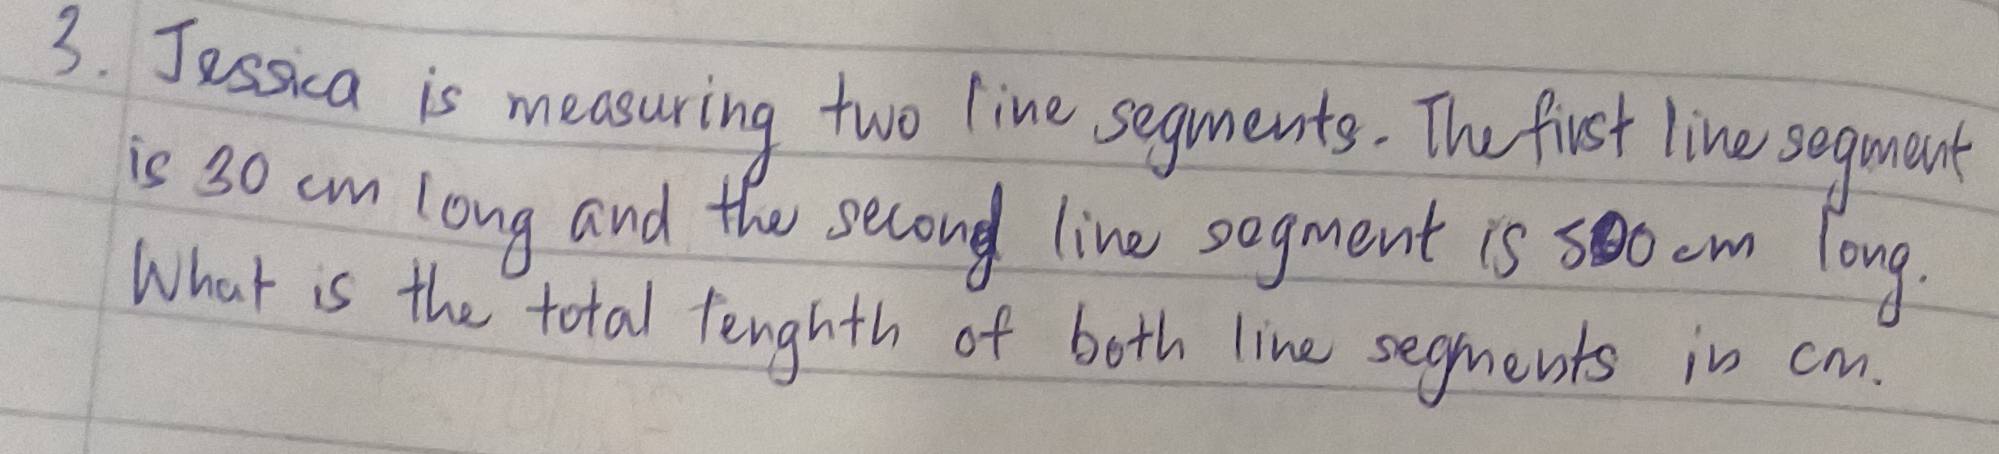 3. Jessica is measuring two line segments. The first line segment
is 30 cm long and the second line segment is 500 cm long.
What is the total lenghth of both line segments in cm.